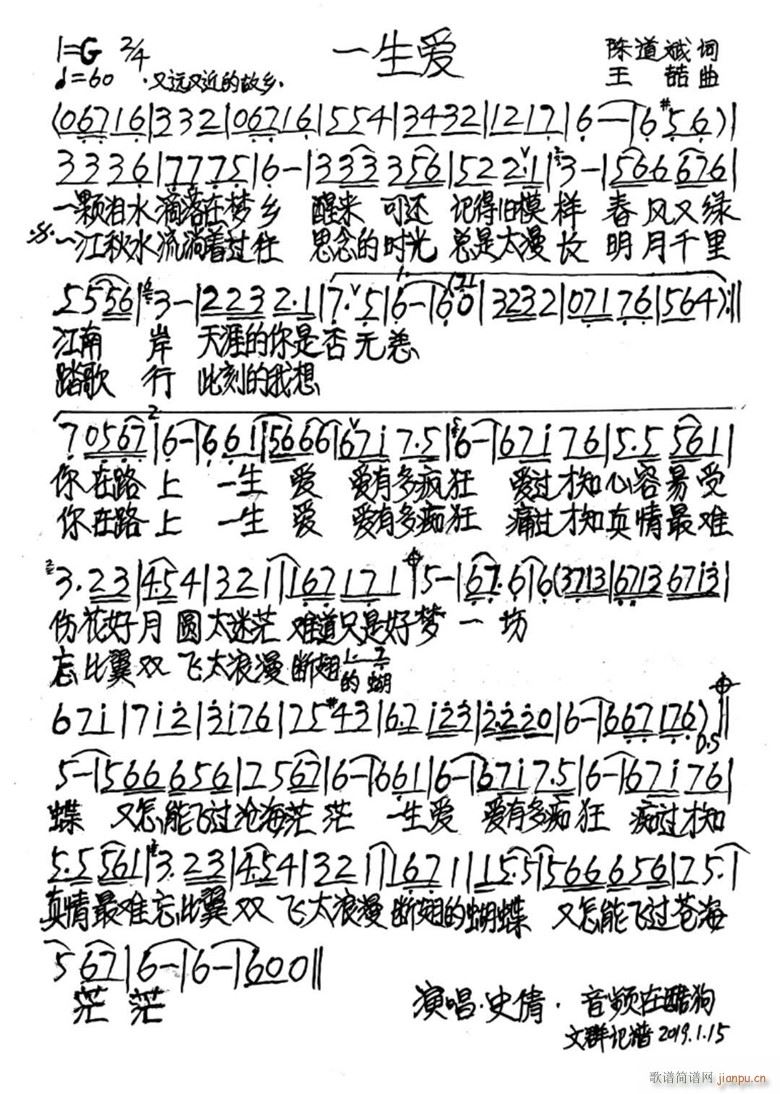 1=G 2/4 一生爱 陈道斌 词
♩=60 ·又远又近的故乡· 王 喆 曲
(06716|332|06716|554|3432|1217|6-|6#56)||
3336|7775|6-|33356|522·1|3-|566676|
一颗泪水滴落在梦乡 醒来 可还 记得旧模样 春风又绿
一江秋水流淌着过往 思念的时光 总是太漫长 明月千里
5556|3-|2232·1|7·5|6-|60|3232|07176|564):||
江南 岸 天涯的你是否无恙
踏歌 行 此刻的我想
70567|6-|661|5666|6717·5|6-|67176|5·5561|
你在路上 一生 爱 爱有多疯狂 爱过才知心容易受
你在路上 一生 爱 爱有多痴狂 痛过才知真情最难
3·23|4·54|321|167171|5-|67·6|6(3713|67136713|
伤花好月 圆太迷茫 难道只是好梦 一 场
忘比翼双 飞太浪漫断翅的蝴
671|712|3176|75#43|6·7123|2·220|6-|667176)||
5-|5666656|7567|6-|661|6-|6717·5|6-|67176|
蝶 又怎能飞过沧海茫 茫 一生爱 爱有多痴狂 痴过才知
5·5561|3·23|4·54|321|1671|115·5|5666656|75·|
真情最难忘比翼双 飞太浪漫断翅的蝴蝶 又怎能飞过苍海
567|6-|6-|600||
茫 茫 演唱·史倩· 音频在酷狗
文群记谱2019.1.15
歌谱简谱网 jianpu.cn